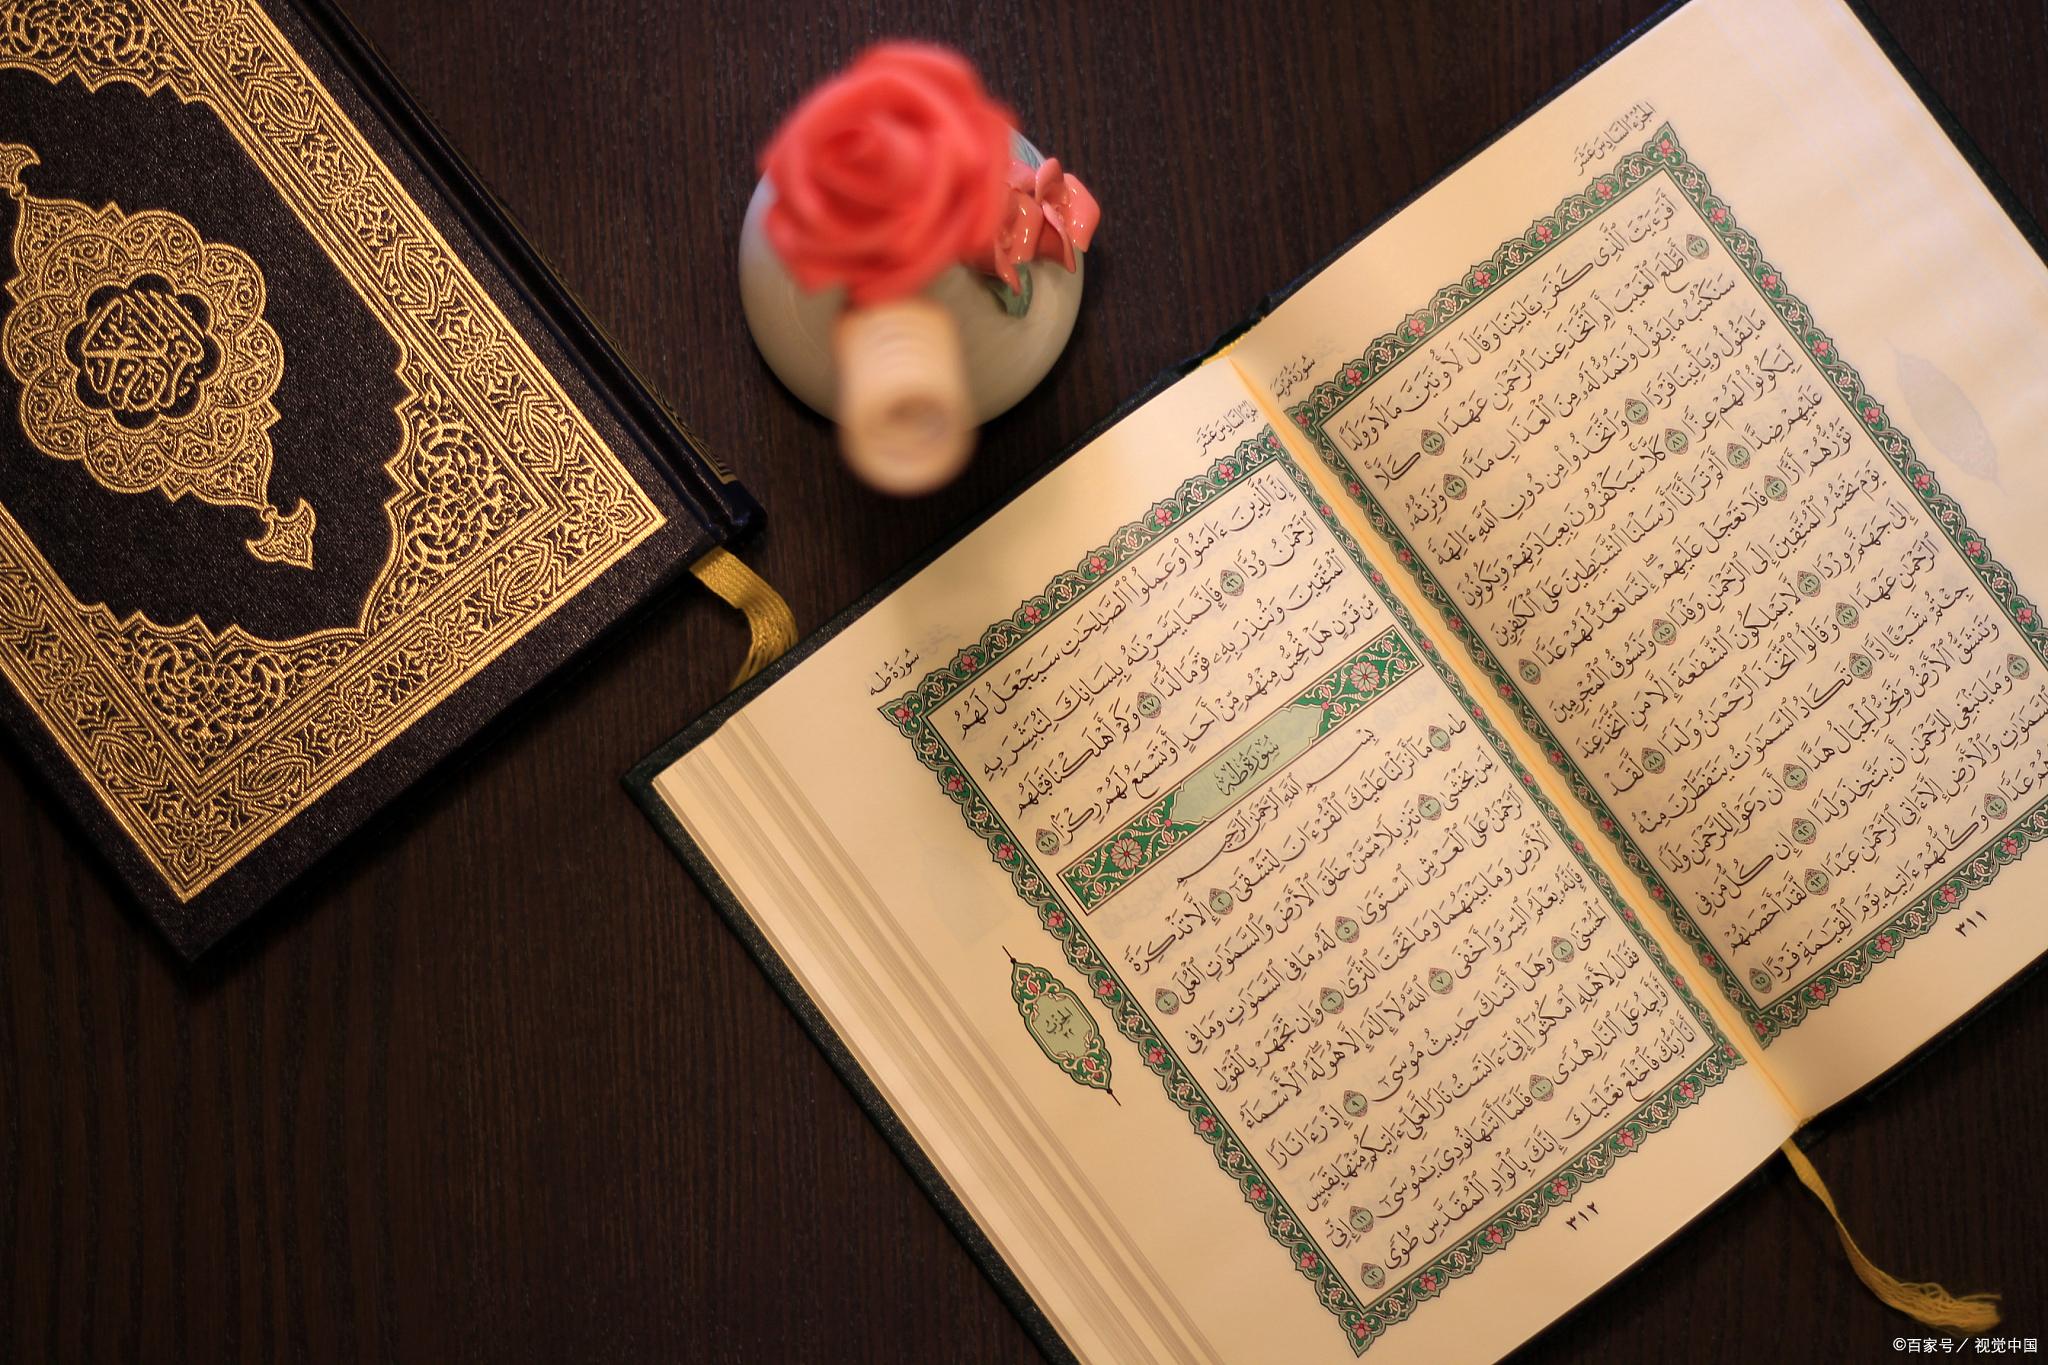 سُورَةُ مَرْيَمَ
الجُزْءُ السَّادِسَ عَشَرَ
أَفَرَءَيْتَ ٱلَّذِى كَفَرَ بِـَٔايَٰتِنَا وَقَالَ لَأُوتَيَنَّ مَالًا وَوَلَدًا
٧٧ أَطَّلَعَ ٱلْغَيْبَ أَمِ ٱتَّخَذَ عِندَ ٱلرَّحْمَٰنِ عَهْدًا ٧٨ كَلَّا
سَنَكْتُبُ مَا يَقُولُ وَنَمُدُّ لَهُۥ مِنَ ٱلْعَذَابِ مَدًّا ٧٩ وَنَرِثُهُۥ
مَا يَقُولُ وَيَأْتِينَا فَرْدًا ٨٠ وَٱتَّخَذُوا۟ مِن دُونِ ٱللَّهِ ءَالِهَةً
لِّيَكُونُوا۟ لَهُمْ عِزًّا ٨١ كَلَّا سَيَكْفُرُونَ بِعِبَادَتِهِمْ وَيَكُونُونَ
عَلَيْهِمْ ضِدًّا ٨٢ أَلَمْ تَرَ أَنَّآ أَرْسَلْنَا ٱلشَّيَٰطِينَ عَلَى ٱلْكَٰفِرِينَ
تَؤُزُّهُمْ أَزًّا ٨٣ فَلَا تَعْجَلْ عَلَيْهِمْ إِنَّمَا نَعُدُّ لَهُمْ عَدًّا ٨٤
يَوْمَ نَحْشُرُ ٱلْمُتَّقِينَ إِلَى ٱلرَّحْمَٰنِ وَفْدًا ٨٥ وَنَسُوقُ ٱلْمُجْرِمِينَ
إِلَىٰ جَهَنَّمَ وِرْدًا ٨٦ لَّا يَمْلِكُونَ ٱلشَّفَٰعَةَ إِلَّا مَنِ ٱتَّخَذَ عِندَ
ٱلرَّحْمَٰنِ عَهْدًا ٨٧ وَقَالُوا۟ ٱتَّخَذَ ٱلرَّحْمَٰنُ وَلَدًا ٨٨ لَّقَدْ
جِئْتُمْ شَيْـًٔا إِدًّا ٨٩ تَكَادُ ٱلسَّمَٰوَٰتُ يَتَفَطَّرْنَ مِنْهُ
وَتَنشَقُّ ٱلْأَرْضُ وَتَخِرُّ ٱلْجِبَالُ هَدًّا ٩٠ أَن دَعَوْا۟ لِلرَّحْمَٰنِ وَلَدًا
٩١ وَمَا يَنۢبَغِى لِلرَّحْمَٰنِ أَن يَتَّخِذَ وَلَدًا ٩٢ إِن كُلُّ مَن فِى
ٱلسَّمَٰوَٰتِ وَٱلْأَرْضِ إِلَّآ ءَاتِى ٱلرَّحْمَٰنِ عَبْدًا ٩٣ لَّقَدْ أَحْصَىٰهُمْ
عَدًّا ٩٤ وَكُلُّهُمْ ءَاتِيهِ يَوْمَ ٱلْقِيَٰمَةِ فَرْدًا ٩٥
٣١١
الجُزْءُ السَّادِسَ عَشَرَ
سُورَةُ طه
إِنَّ ٱلَّذِينَ ءَامَنُوا۟ وَعَمِلُوا۟ ٱلصَّٰلِحَٰتِ سَيَجْعَلُ لَهُمُ
ٱلرَّحْمَٰنُ وُدًّا ٩٦ فَإِنَّمَا يَسَّرْنَٰهُ بِلِسَانِكَ لِتُبَشِّرَ بِهِ
ٱلْمُتَّقِينَ وَتُنذِرَ بِهِۦ قَوْمًا لُّدًّا ٩٧ وَكَمْ أَهْلَكْنَا قَبْلَهُم
مِّن قَرْنٍ هَلْ تُحِسُّ مِنْهُم مِّنْ أَحَدٍ أَوْ تَسْمَعُ لَهُمْ رِكْزًۢا ٩٨
سُورَةُ طه
بِسْمِ ٱللَّهِ ٱلرَّحْمَٰنِ ٱلرَّحِيمِ
طه ١ مَآ أَنزَلْنَا عَلَيْكَ ٱلْقُرْءَانَ لِتَشْقَىٰٓ ٢ إِلَّا تَذْكِرَةً
لِّمَن يَخْشَىٰ ٣ تَنزِيلًا مِّمَّنْ خَلَقَ ٱلْأَرْضَ وَٱلسَّمَٰوَٰتِ ٱلْعُلَى ٤
ٱلرَّحْمَٰنُ عَلَى ٱلْعَرْشِ ٱسْتَوَىٰ ٥ لَهُۥ مَا فِى ٱلسَّمَٰوَٰتِ وَمَا فِى
ٱلْأَرْضِ وَمَا بَيْنَهُمَا وَمَا تَحْتَ ٱلثَّرَىٰ ٦ وَإِن تَجْهَرْ بِٱلْقَوْلِ
فَإِنَّهُۥ يَعْلَمُ ٱلسِّرَّ وَأَخْفَى ٧ ٱللَّهُ لَآ إِلَٰهَ إِلَّا هُوَ ۖ لَهُ ٱلْأَسْمَآءُ
ٱلْحُسْنَىٰ ٨ وَهَلْ أَتَىٰكَ حَدِيثُ مُوسَىٰٓ ٩ إِذْ رَءَا نَارًا
فَقَالَ لِأَهْلِهِ ٱمْكُثُوٓا۟ إِنِّىٓ ءَانَسْتُ نَارًا لَّعَلِّىٓ ءَاتِيكُم مِّنْهَا بِقَبَسٍ
أَوْ أَجِدُ عَلَى ٱلنَّارِ هُدًى ١٠ فَلَمَّآ أَتَىٰهَا نُودِىَ يَٰمُوسَىٰٓ ١١ إِنِّىٓ
أَنَا۠ رَبُّكَ فَٱخْلَعْ نَعْلَيْكَ ۖ إِنَّكَ بِٱلْوَادِ ٱلْمُقَدَّسِ طُوًى ١٢
٣١٢
الحِزْبُ
٣٢
©百家号／视觉中国